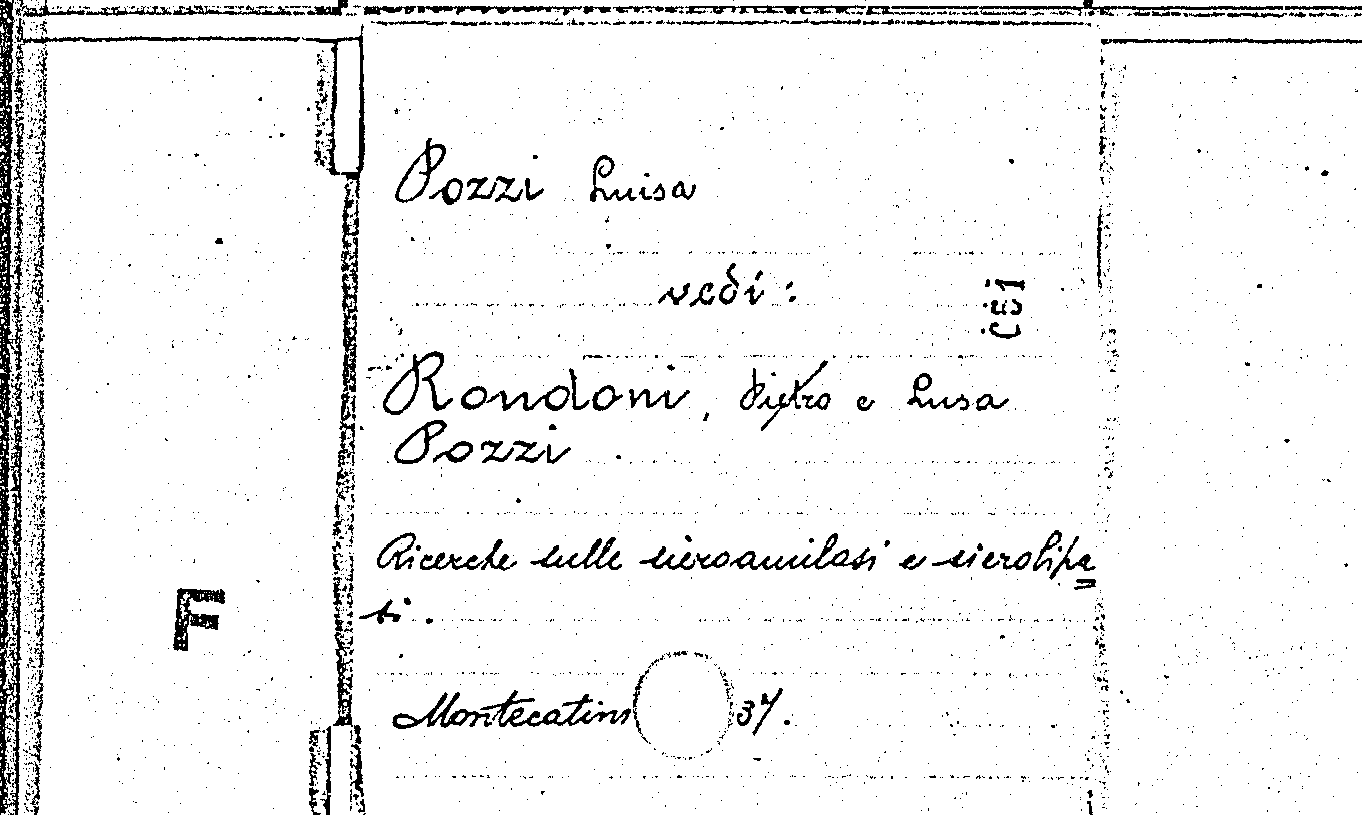 Pozzi Luisa
vedi :
Rondoni, Pietro e Lusa
Pozzi
Ricerche sulle sieroamilasi e sierolipa=
si.
Montecatini 37.
F